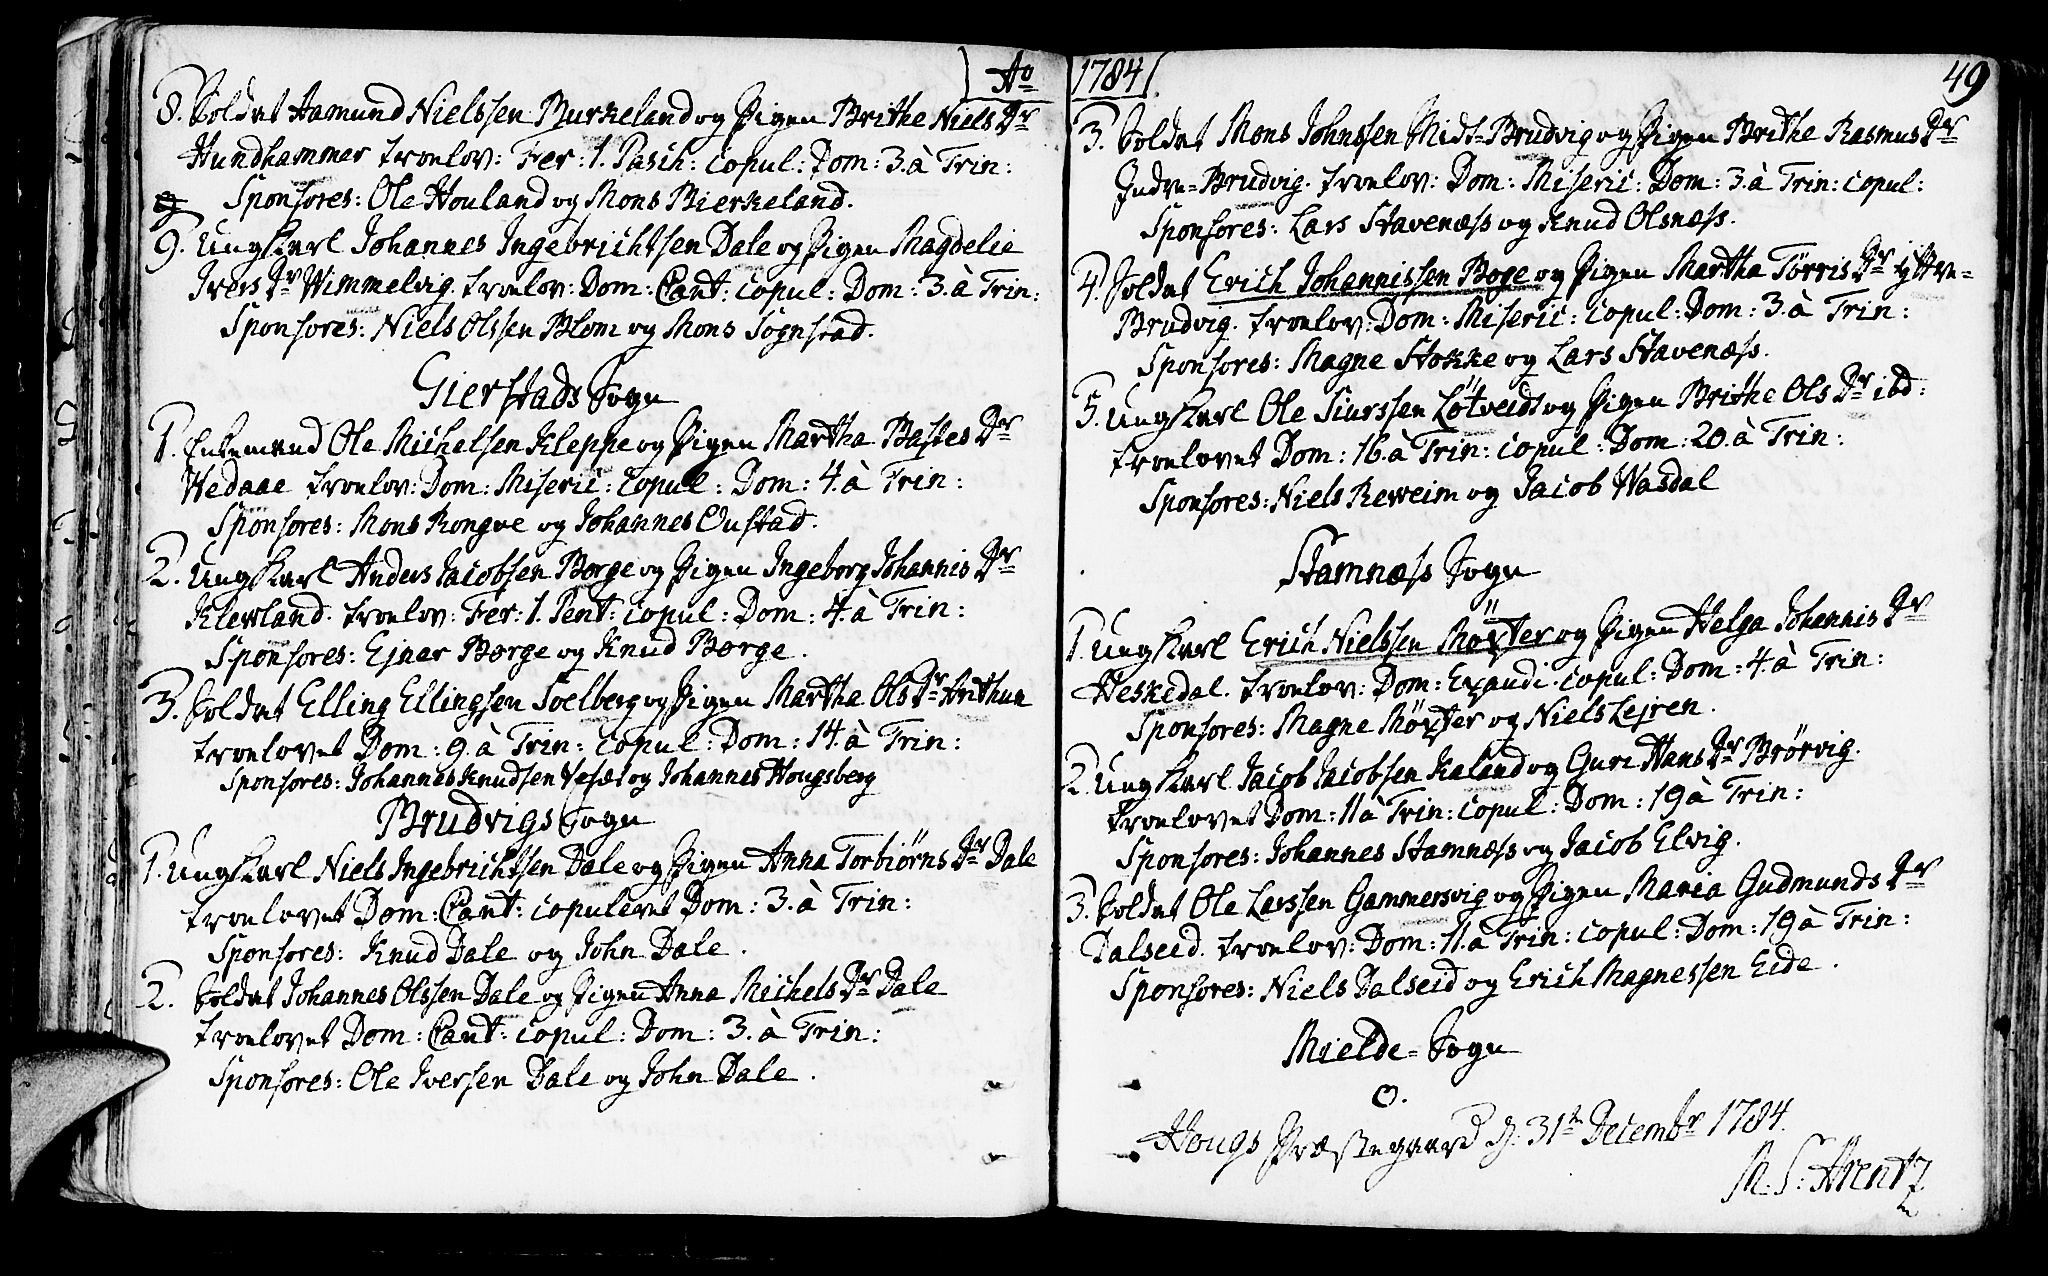 Ao
8. Soldat Aamund Nielssen Burkeland og Pigen Brithe Niels Dr
Hundhammer trolov: Fer: 1. Pasch: copul: Dom: 3. à Trin:
Sponsores: Ole Houland og Mons Bierkeland.
9. Ung Karl Johannes Ingebrichtsen Dale og Pigen Magdelie
Ivers Dr Wimmelvig. trolov: Dom: Cant: copul: Dom: 3. à Trin:
Sponsores: Niels Olssen Blom og Mons Sognstad.
Gierstads Sogn
1. Enkemand Ole Michelsen Kleppe og Pigen Martha Bastes Dr
Wedaae trolov: Dom: Miseric: copul: Dom: 4. à Trin:
Sponsores: Mons Rongve og Johannes Oustad.
2. Ung Karl Anders Jacobsen Borge og Pigen Ingeborg Johannis Dr
Klewland. trolov: Fer: 1. Pent: copul: Dom: 4. à Trin:
Sponsores: Ejnar Borge og Knud Borge.
3. Soldat Elling Ellingsen Soelberg og Pigen Martha Ols Dr Arthun
trolovet Dom: 9. à Trin: copul: Dom: 14. à Trin:
Sponsores: Johannes Knudsen Vesæt og Johannes Hougsberg
Brudvigs Sogn
1. Ung Karl Niels Ingebrichtsen Dale og Pigen Anna Torbiørns Dr Dale
trolovet Dom: Cant: copuleret Dom: 3. à Trin:
Sponsores: Knud Dale og John Dale.
2. Soldat Johannes Olssen Dale og Pigen Anna Michels Dr Dale
trolovet Dom: Cant: copul: Dom: 3. à Trin:
Sponsores: Ole Iversen Dale og John Dale.
1784. 49
3. Soldat Mons Johnssen Midt=Brudvig og Pigen Brithe Rasmus Dr
Indre=Brudvig. trolov: Dom: Miseric: Dom: 3. à Trin: copul:
Sponsores: Lars Stavenæss og Knud Olsnæss.
4. Soldat Erich Johannissen Boge og Pigen Martha Törris Dr Yttre=
Brudvig. trolov: Dom: Miseric: copul: Dom: 3. à Trin:
Sponsores: Magne Stokke og Lars Stavenæss.
5. Ung Karl Ole Siurssen Lötveidt og Pigen Brithe Ols Dr ibd:
trolovet Dom: 16. à Trin: copul: Dom: 20. à Trin:
Sponsores: Niels Reweim og Jacob Wasdal
Stamnæss Sogn
1. Ung Karl Erich Nielssen Möxter og Pigen Helga Johannis Dr
Heskedal. trolov: Dom: Exaudi. copul: Dom: 4. à Trin:
Sponsores: Magne Möxter og Niels Lejren.
2. Ung Karl Jacob Jacobsen Kaland og Guri Hans Dr Brørvig.
trolovet Dom: 11 à Trin: copul: Dom: 19 à Trin:
Sponsores: Johannes Stamnæss og Jacob Elvig.
3. Soldat Ole Larssen Gammersvig og Pigen Maria Gudmunds Dr
Dalseid. trolov: Dom: 11. à Trin: copul: Dom: 19 à Trin:
Sponsores: Niels Dalseid og Erich Magnessen Eide.
Mielde=Sogn
O.
Hougs Præstegaard d. 31te Decembr 1784.
M. S: Arentz